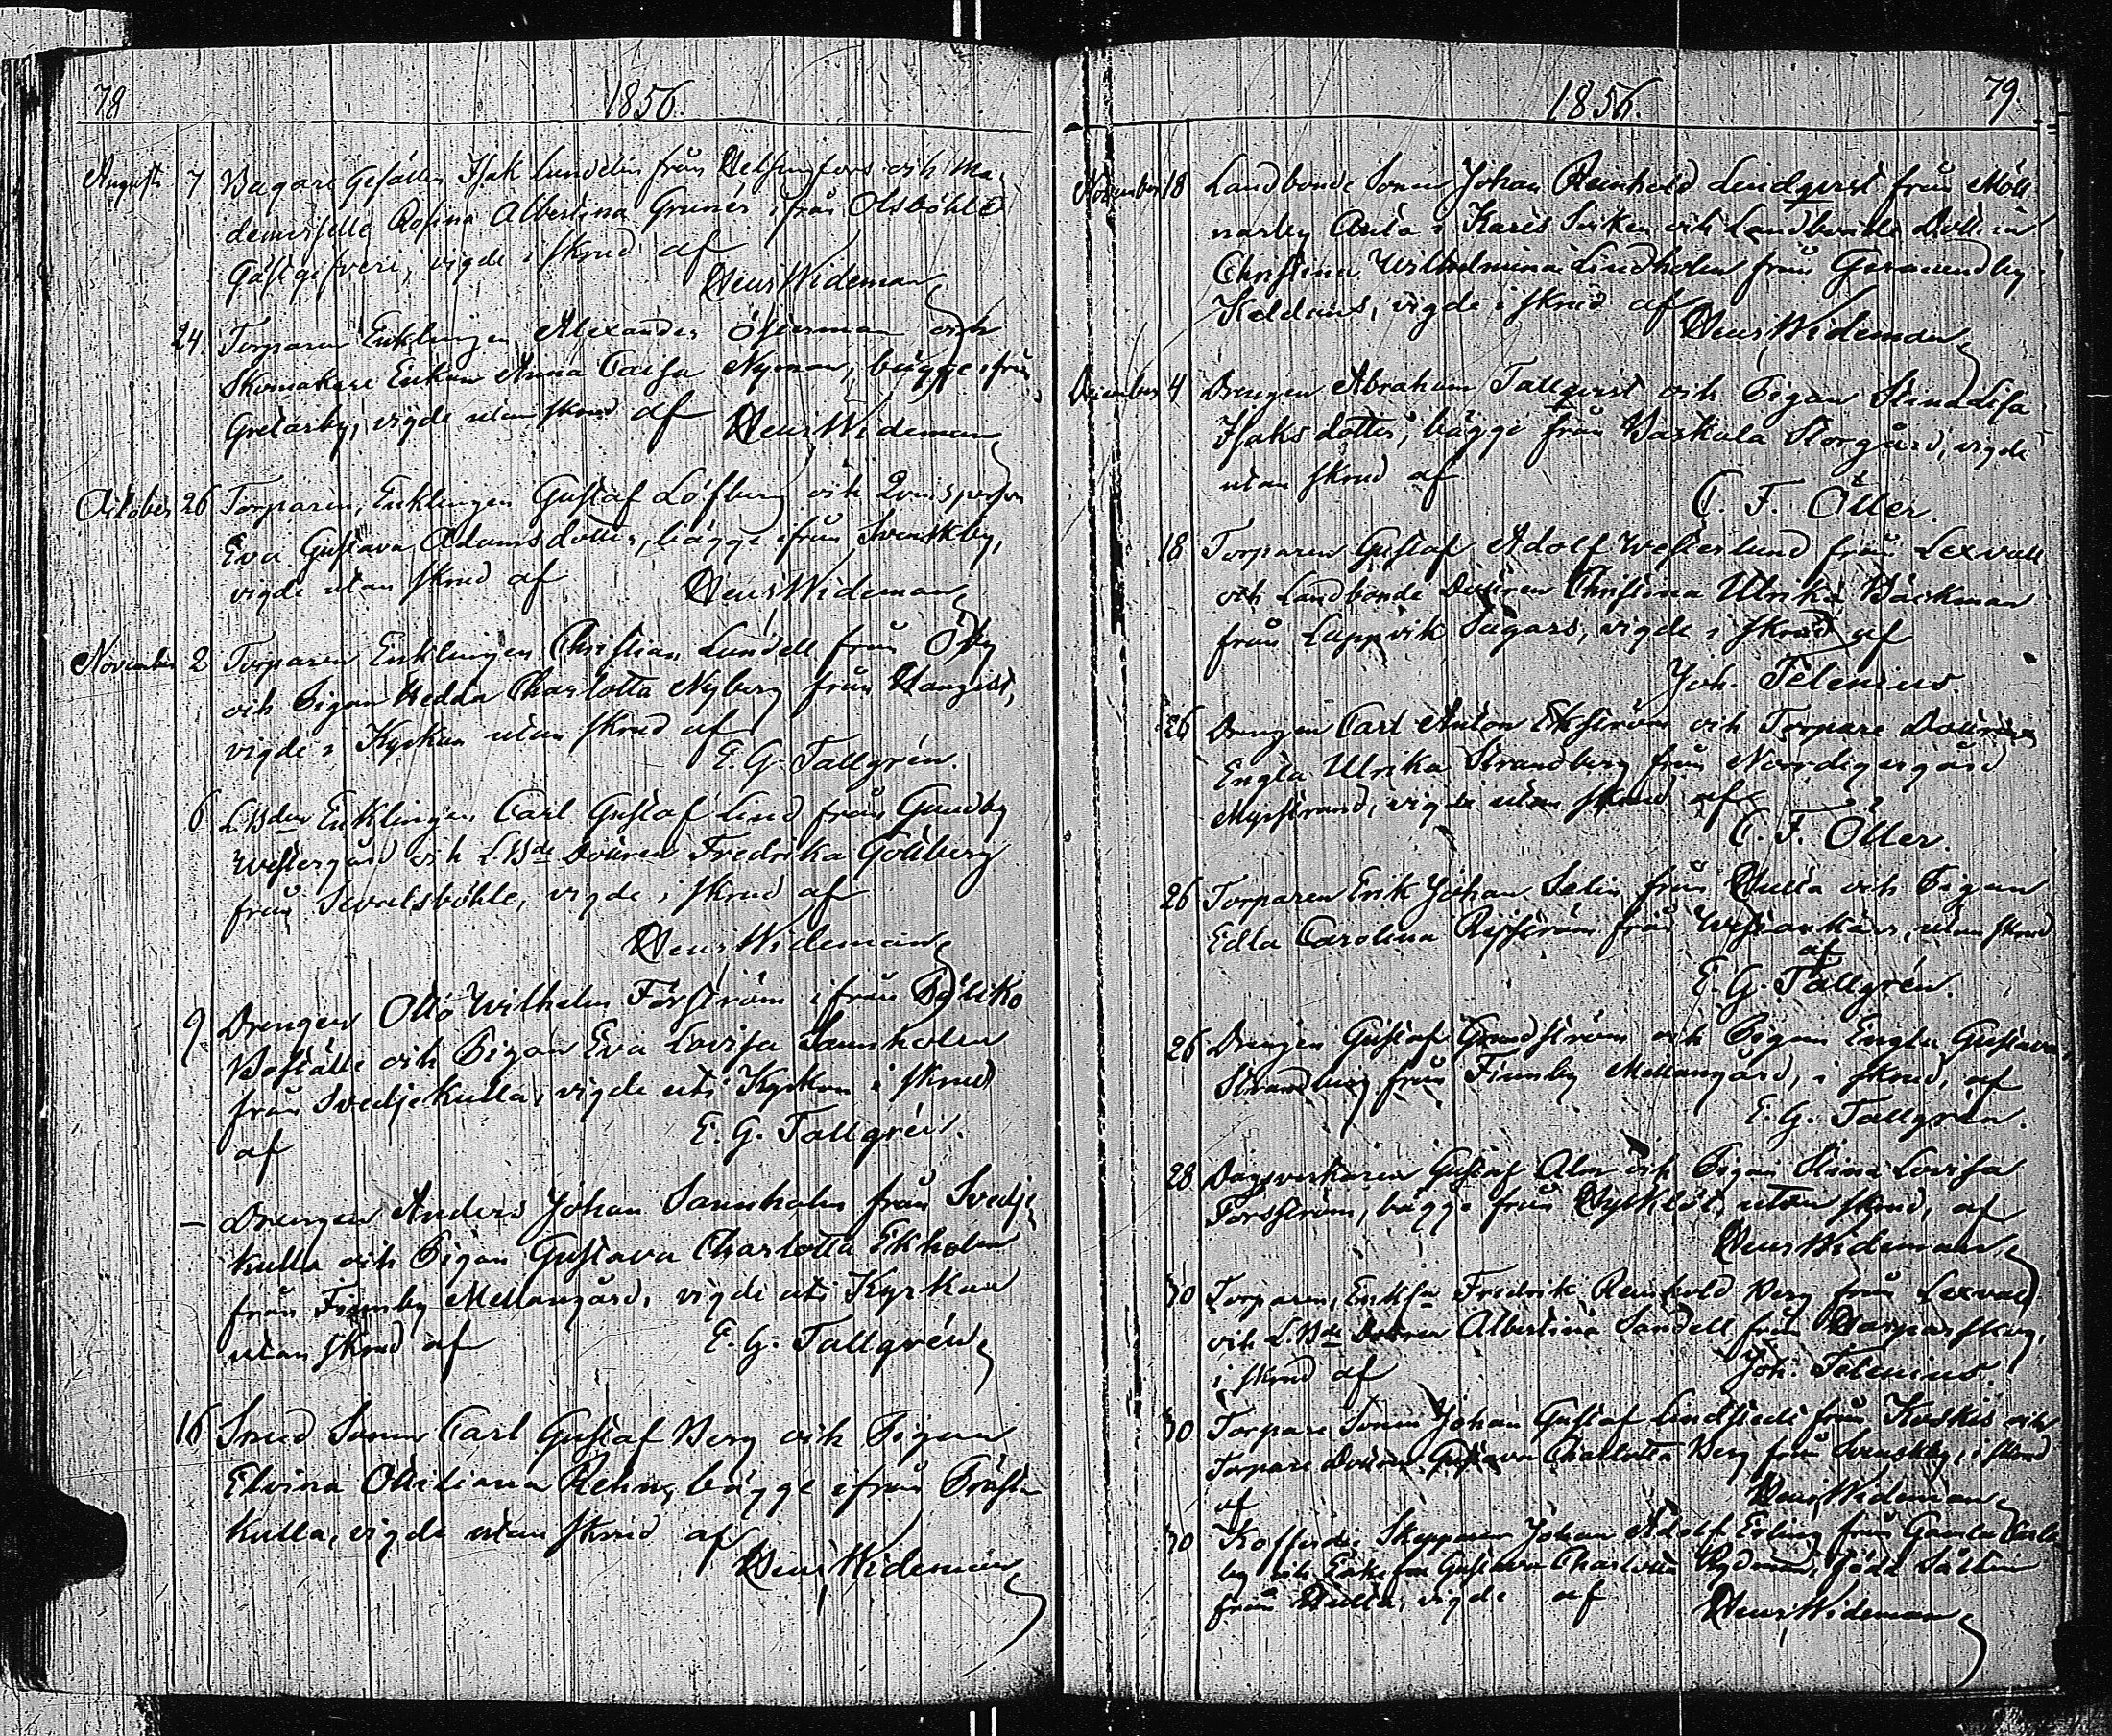 78
1856.
Augusti 7 Bagare Gesällen Isak Lundelin från Helsingfors och Ma-
demoiselle Rosina Albertina Grunér ifrån Olsböhle
Gästgifveri, vigde i skrud af
Henr Wideman
24. Torparen Enklingen Alexander Österman och
Skomakare Enkan Anna Caisa Nyman, bägge ifrån
Gretarby, vigde utan skrud af Henr Wideman
October 26 Torparen, Enklingen Gustaf Löfberg och Qvinsperson
Eva Gustava Adamsdotter, bägge ifrån Svenskby,
vigde utan skrud af Henr Wideman
November 2 Torparen Enklingen Christian Lundell från Öby
och Pigan Hedda Charlotta Nyberg från Hangist,
vigde i Kyrkan utan skrud af
E. G. Tallgrén.
6 L.Bden Enklingen Carl Gustaf Lind från Gundby
Westergård och L.Bde Dottren Fredrika Göttberg
från vigde i skrud af
Henr Wideman
9 Drengen Otto Wilhelm Forsström ifrån
Boställe och Pigan Eva Lovisa Sannholm
från Svedjekulla, vigde uti Kyrkan i skrud
af E. G. Tallgrén.
— Drengen Anders Johan Sannholm från Svedje-
kulla och Pigan Gustava Charlotta Ekholm
från Finnby Mellangård, vigde uti Kyrkan
utan skrud af E. G. Tallgrén
16 Smed Sonen Carl Gustaf Berg och Pigan
Elvina Ottiliana Rehn, bägge ifrån Präst-
kulla, vigde utan skrud af
Henr Wideman
1856.
79.
November 18 Landbonde Sonen Johan Reinhold Lindqvist från Möll-
narby i Karis Socken och Landbonde Dottren
Christina Wilhelmina Lindholm från Germundby
Keldous, vigde i skrud af
Henr Wideman
December 4 Drengen Abraham Tallqvist och Pigan Stina Lisa
Isaks dotter, bägge från Baskula Storgård, vigde
utan skrud af
C. F. Öller.
18 Torparen Gustaf Adolf Westerlund från Lexvall
och Landbonde Dottren Christina Ulrika Bäckman
från Lappvik Sågars, vigde i skrud af
Joh. Telenius.
26 Drengen Carl Anton Ekström och Torpare Dottren
Engla Ulrika Strandberg från Norrdigergård
vigde utan skrud af
C. F. Öller.
26 Torparen Erik Johan Selin från Hulta och Pigan
Edla Carolina från Westankärr, utan skrud
af
E. G. Tallgrén.
26 Drengen Gustaf Grundström och Pigan Engla Gustava
Strandberg från Finnby Mellangård, i skrud, af
E. G. Tallgrén.
28 Dagsverkaren Gustaf Alm och Pigan Stina Lovisa
Forsström, bägge från utan skrud, af
Henr Wideman
30 Torparen, Fredrik Reinhold Berg från Lexvall
och L.Bde Dottren Albertina Sandell från Harparskog,
i skrud af Joh. Telenius.
30 Torpare Sonen Johan Gustaf Lindstedt från Koskis och
Torpare Dottren Gustava Charlotta Berg från Svenskby, i skrud
af Henr Wideman
30 Kofferdi Skepparen Johan Adolf Erling från Gamla Carle-
by och Enkefru Gustava Charlotta född
från Hulta, vigde af Henr Wideman